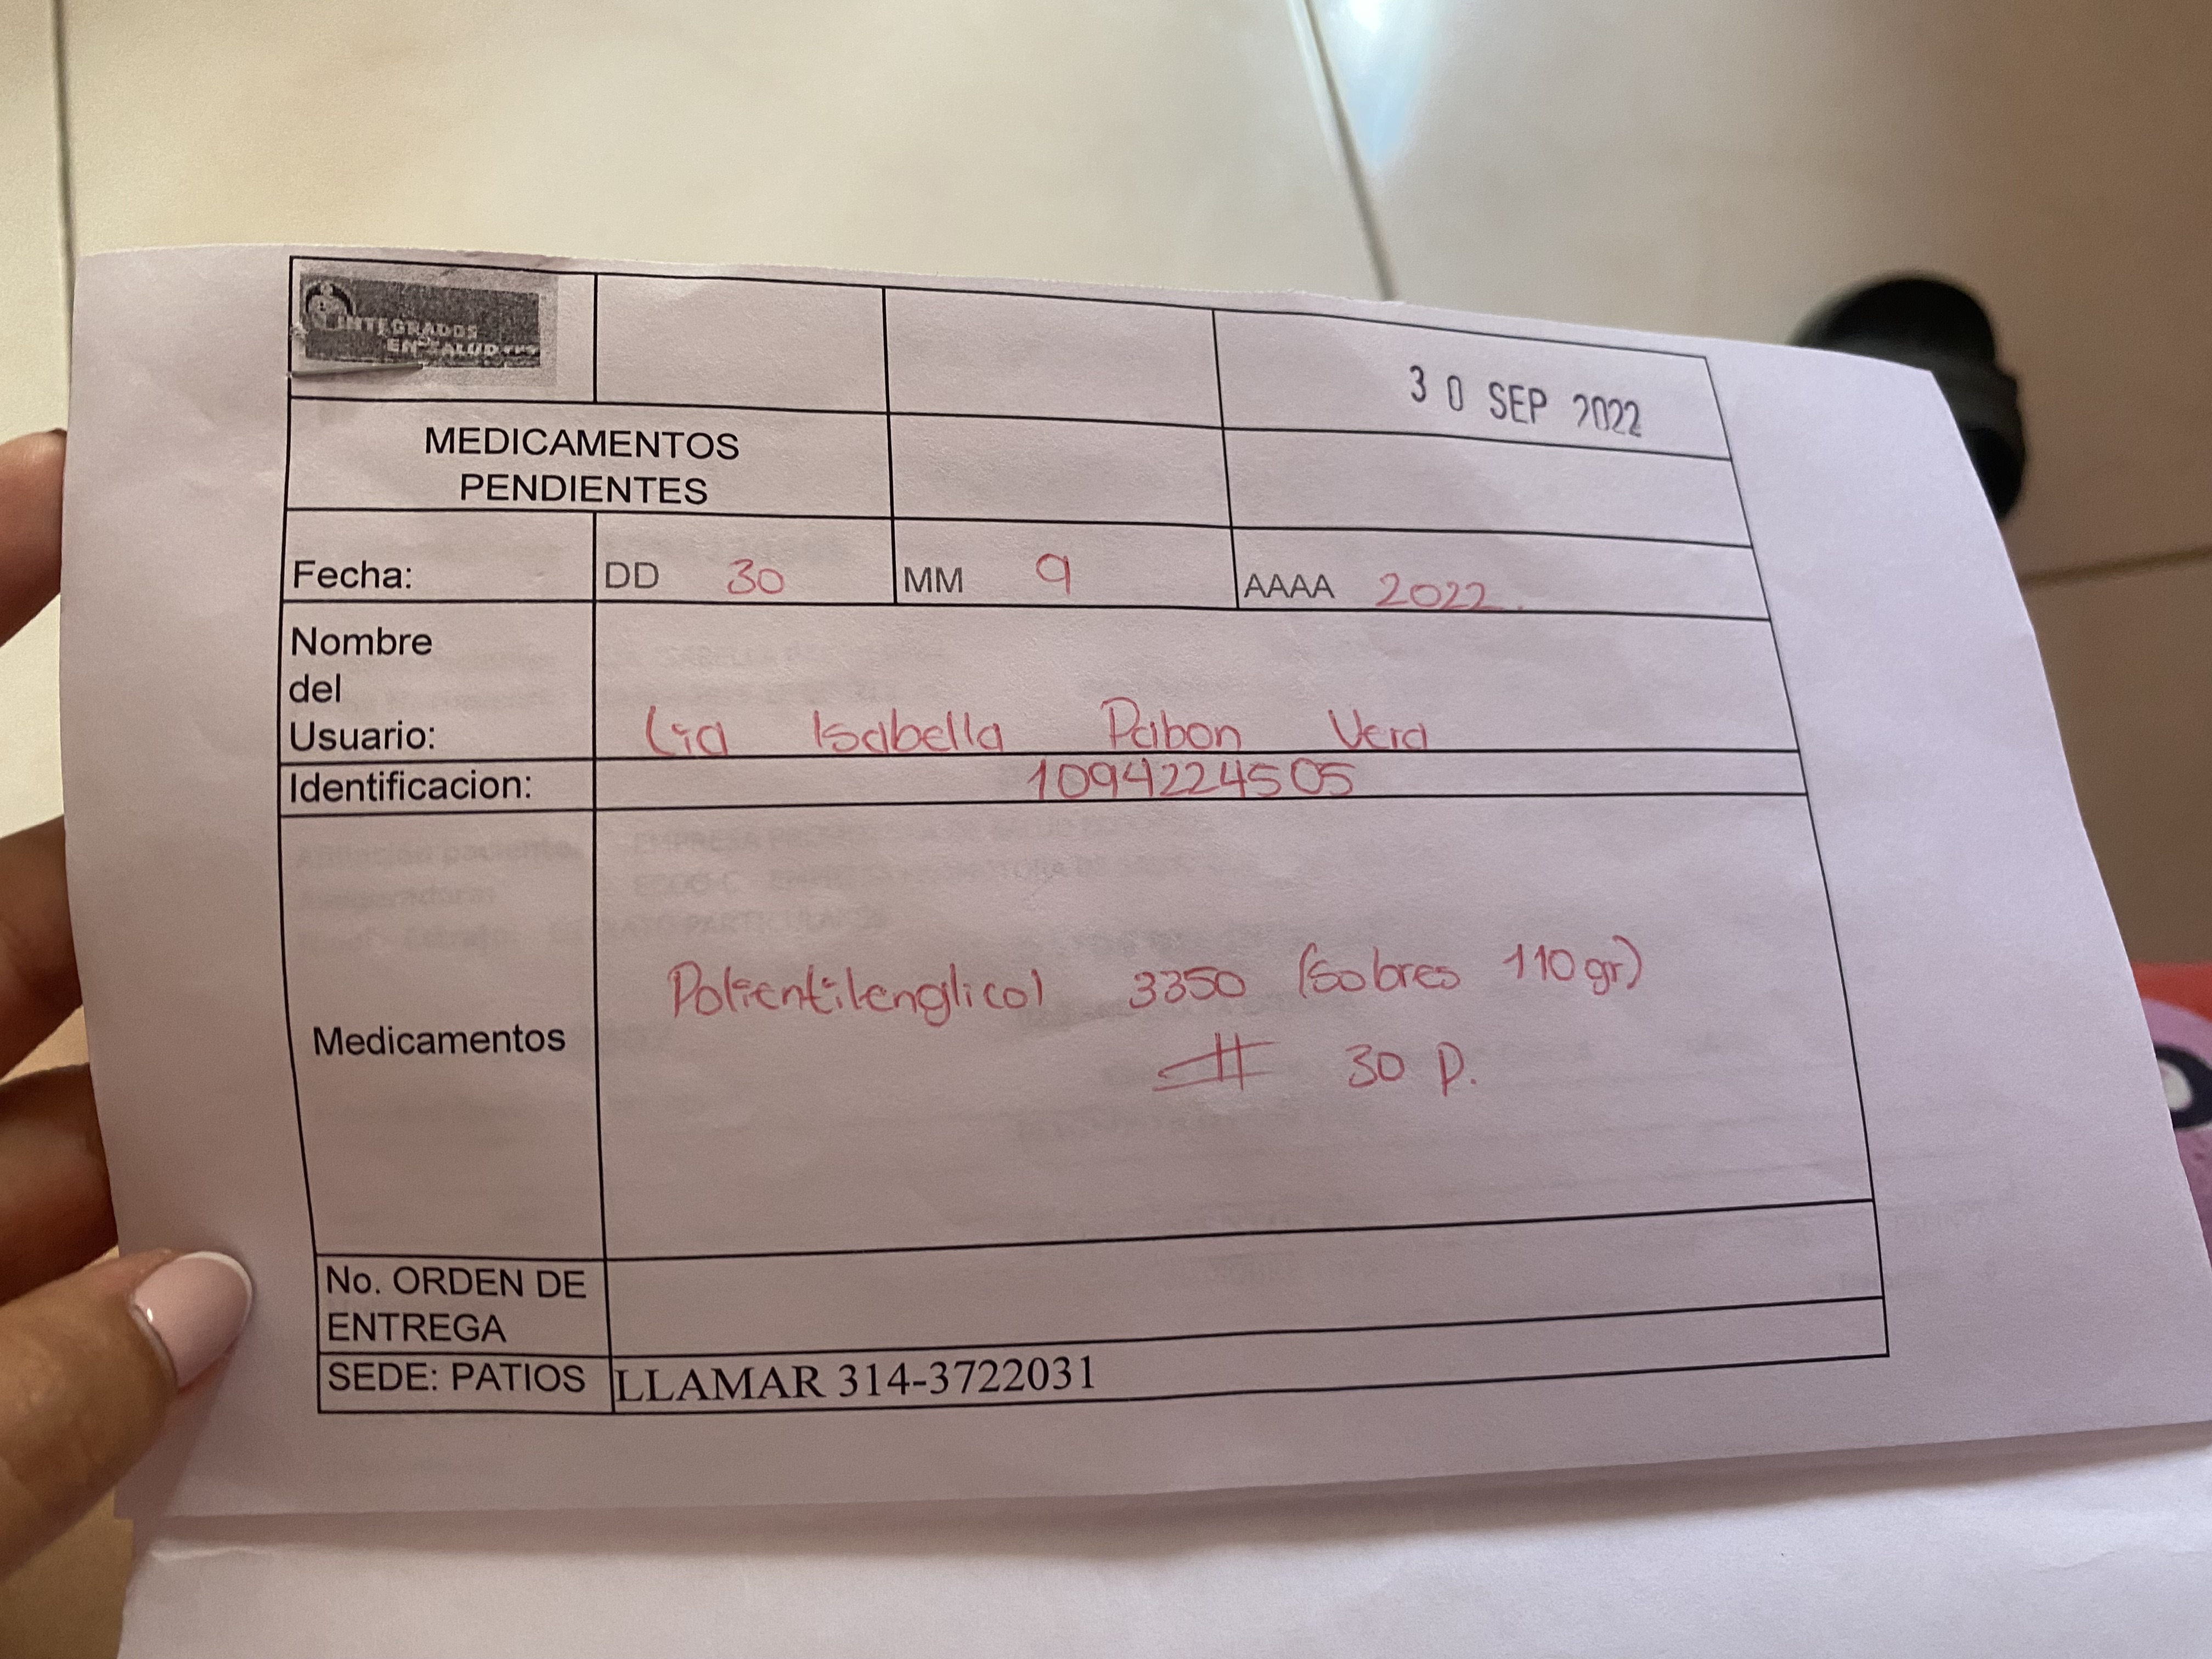 INTEGRADOS
EN SALUD
30 SEP 2022
MEDICAMENTOS
PENDIENTES
Fecha: DD 30 MM 9 AAAA 2022
Nombre
del
Usuario: Lya Isabella Pabon Vera
Identificacion: 1094224505
Medicamentos Polientilenglicol 3350 (sobres 110gr)
30 P.
No. ORDEN DE
ENTREGA
SEDE: PATIOS LLAMAR 314-3722031